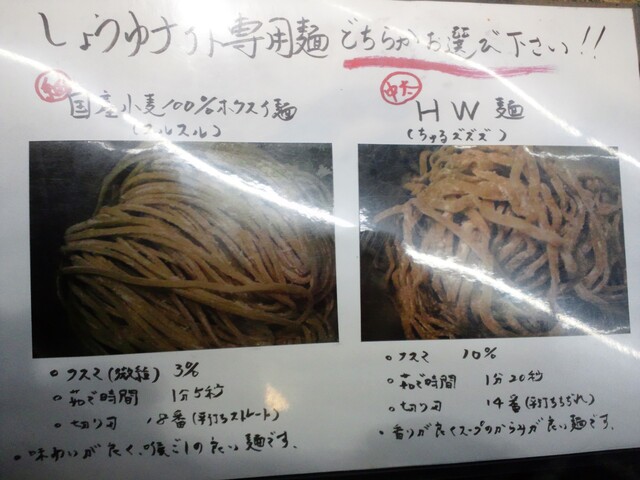 しょうゆナイト専用麺 どちらかお選び下さい!!
細
国産小麦100%ホクスイ麺
(ツルスル)
・フスマ(微粒) 3%
・茹で時間 1分5秒
・切り刃 18番(平打ちストレート)
・味わいが良く、喉ごしの良い麺です。
中太
HW麺
(ちゅるズズズ)
・フスマ 10%
・茹で時間 1分20秒
・切り刃 14番(平打ちちぢれ)
・香りが良くスープのからみが良い麺です。